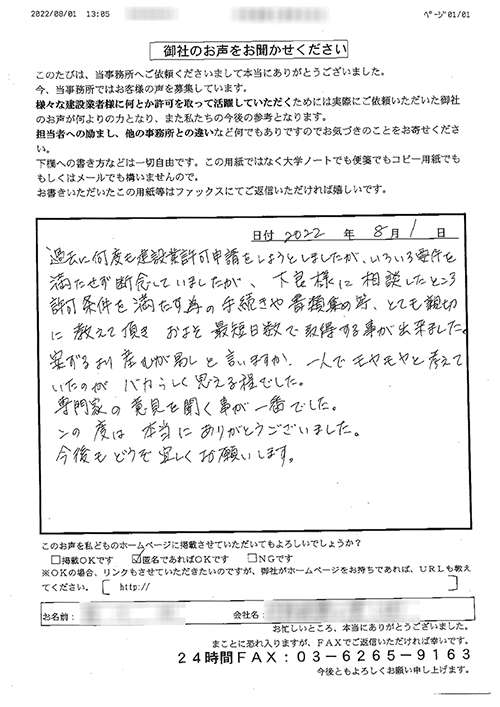 2022/08/01 13:05
ﾍﾟｰｼﾞ01/01
御社のお声をお聞かせください
このたびは、当事務所へご依頼くださいまして本当にありがとうございました。
今、当事務所ではお客様の声を募集しています。
様々な建設業者様に何とか許可を取って活躍していただくためには実際にご依頼いただいた御社
のお声が何よりの力となり、また私たちの今後の参考となります。
担当者への励まし、他の事務所との違いなど何でもありですのでお気づきのことをお寄せくださ
い。
下欄への書き方などは一切自由です。この用紙ではなく大学ノートでも便箋でもコピー用紙でも
もしくはメールでも構いませんので。
お書きいただいたこの用紙等はファックスにてご返信いただければ嬉しいです。
日付 2022 年 8月 1 日
過去に何度も建設業許可申請をしようとしましたが、いろいろ要件を
満たせず断念していましたが、下名様に相談したところ
許可条件を満たす為の手続きや書類集め等、とても親切
に教えて頂き およそ最短日数で取得する事が出来ました。
案ずるより産むが易しと言いますが、一人でモヤモヤと考えて
いたのが バカらしく思える程でした。
専門家の意見を聞く事が一番でした。
この度は 本当にありがとうございました。
今後もどうぞ宜しくお願いします。
このお声を私どものホームページに掲載させていただいてもよろしいでしょうか？
□掲載OKです ☑匿名であればOKです □NGです
※OKの場合、リンクもさせていただきたいのですが、御社がホームページをお持ちであれば、URLも教え
てください。〔 http:// 〕
お名前： 会社名：
お忙しいところ、本当にありがとうございました。
まことに恐れ入りますが、FAXでご返信いただければ幸いです。
24時間FAX：03-6265-9163
今後ともよろしくお願い申し上げます。